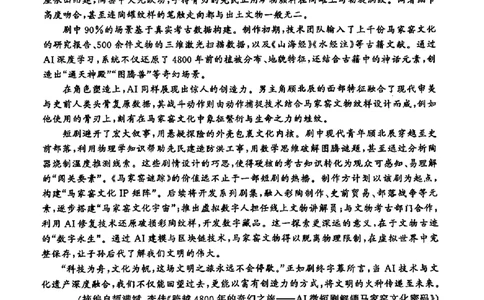 高度吻合,甚至连陶罐纹样的笔触走向都与出土文物一般无二。
剧中90%的场景基于真实考古数据构建。制作期初,技术团队输入了上千份马家窑文化
的研究报告、500余件文物的三维激光扫描数据,以及《山海经》《水经注》等古籍文献。通过
AI深度学习,系统不仅还原了4800年前的植被分布、地貌特征,还结合古籍中的神话元素,创
造出“通天神殿”“图腾兽”等奇幻场景。
在角色塑造上,AI同样展现出惊人的创造力。男主角顾北辰的面部特征融合了现代审美
与史前人类头骨复原数据,其战斗动作则由动作捕捉技术结合马家窑文物纹样设计而成,例如
他使用的骨刃上,刻有在马家窑文化中象征繁衍与生命之力的蛙纹。
短剧避开了宏大叙事,用悬疑探险的外壳包裹文化内核。剧中现代青年顾北辰穿越至史
前部落,利用物理学知识帮助先民建造防洪工事,用数学思维破解图腾谜题,甚至通过分析陶
器烧制温度推测线索。这些剧情设计的巧思,使得硬核的考古知识转化为观众可感知、易理解
的“闯关要素”。《马家窑谜踪》的价值远不止于一部短剧的热播。制作方计划以该剧为起点,
构建“马家窑文化IP矩阵”。后续将开发系列剧集,融入彩陶制作、史前贸易、部落战争等元
素,逐步搭建“马家窑文化宇宙”;推出虚拟数字人担任线上文物讲解员;与文物考古部门合作,
利用AI修复技术还原破损彩陶纹样,开发数字藏品。这一探索更深远的意义,在于文物古迹
的“数字永生”。通过AI建模与区块链技术,马家窑文物得以脱离物理限制,在虚拟世界中完
整保存,让子孙后代了解我们文明的伟大。
“科技为舟,文化为帆,这场文明之旅永远不会停歇。”正如剧终字幕所言,当AI技术与文
化遗产深度融合,我们不仅能回望过去,更能以富有创造力的方式,将文明的火种传递至未来。